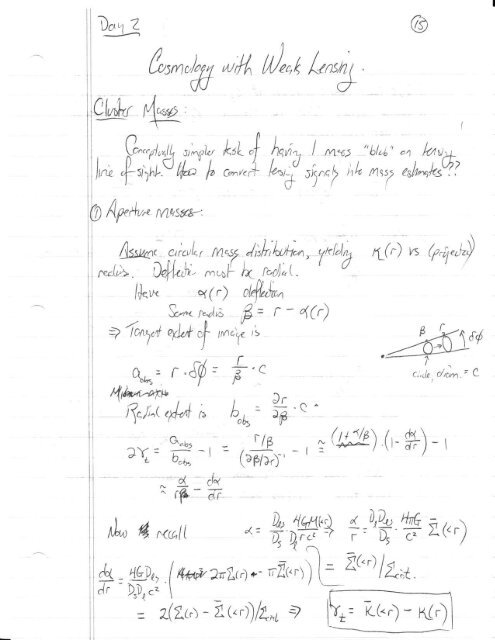 Day 2
15
Cosmology with Weak Lensing.
Cluster Masses:
Conceptually simpler task of having 1 mass "blob" on lensing
line of sight. How to convert lensing signals into mass estimates??
① Aperture masses:
Assume circular mass distribution, yielding κ(r) vs (projected)
radius. Deflection must be radial.
Have α(r) deflection
Source radius β = r - α(r)
⇒ Tangent extent of image is
a_obs = r·δφ = r/β · c
β r δφ
circle, diam. = c
Radial extent is b_obs = ∂r/∂β · c
2γ_t = a_obs/b_obs - 1 = (r/β)/(∂β/∂r)^-1 - 1 ≅ (1+α/β)·(1-dα/dr) - 1
≈ α/r - dα/dr
Now recall α = D_ls/D_s 4GM(<r)/D_l r c² ⇒ α/r = D_l D_ls/D_s · 4πG/c² Σ̄(<r)
= Σ̄(<r)/Σ_crit.
dα/dr = 4GD_ls/D_s D_l c² · (2πΣ(r) - πΣ̄(<r))
= 2(Σ(r) - Σ̄(<r))/Σ_crit ⇒ γ_t = κ̄(<r) - κ(r)